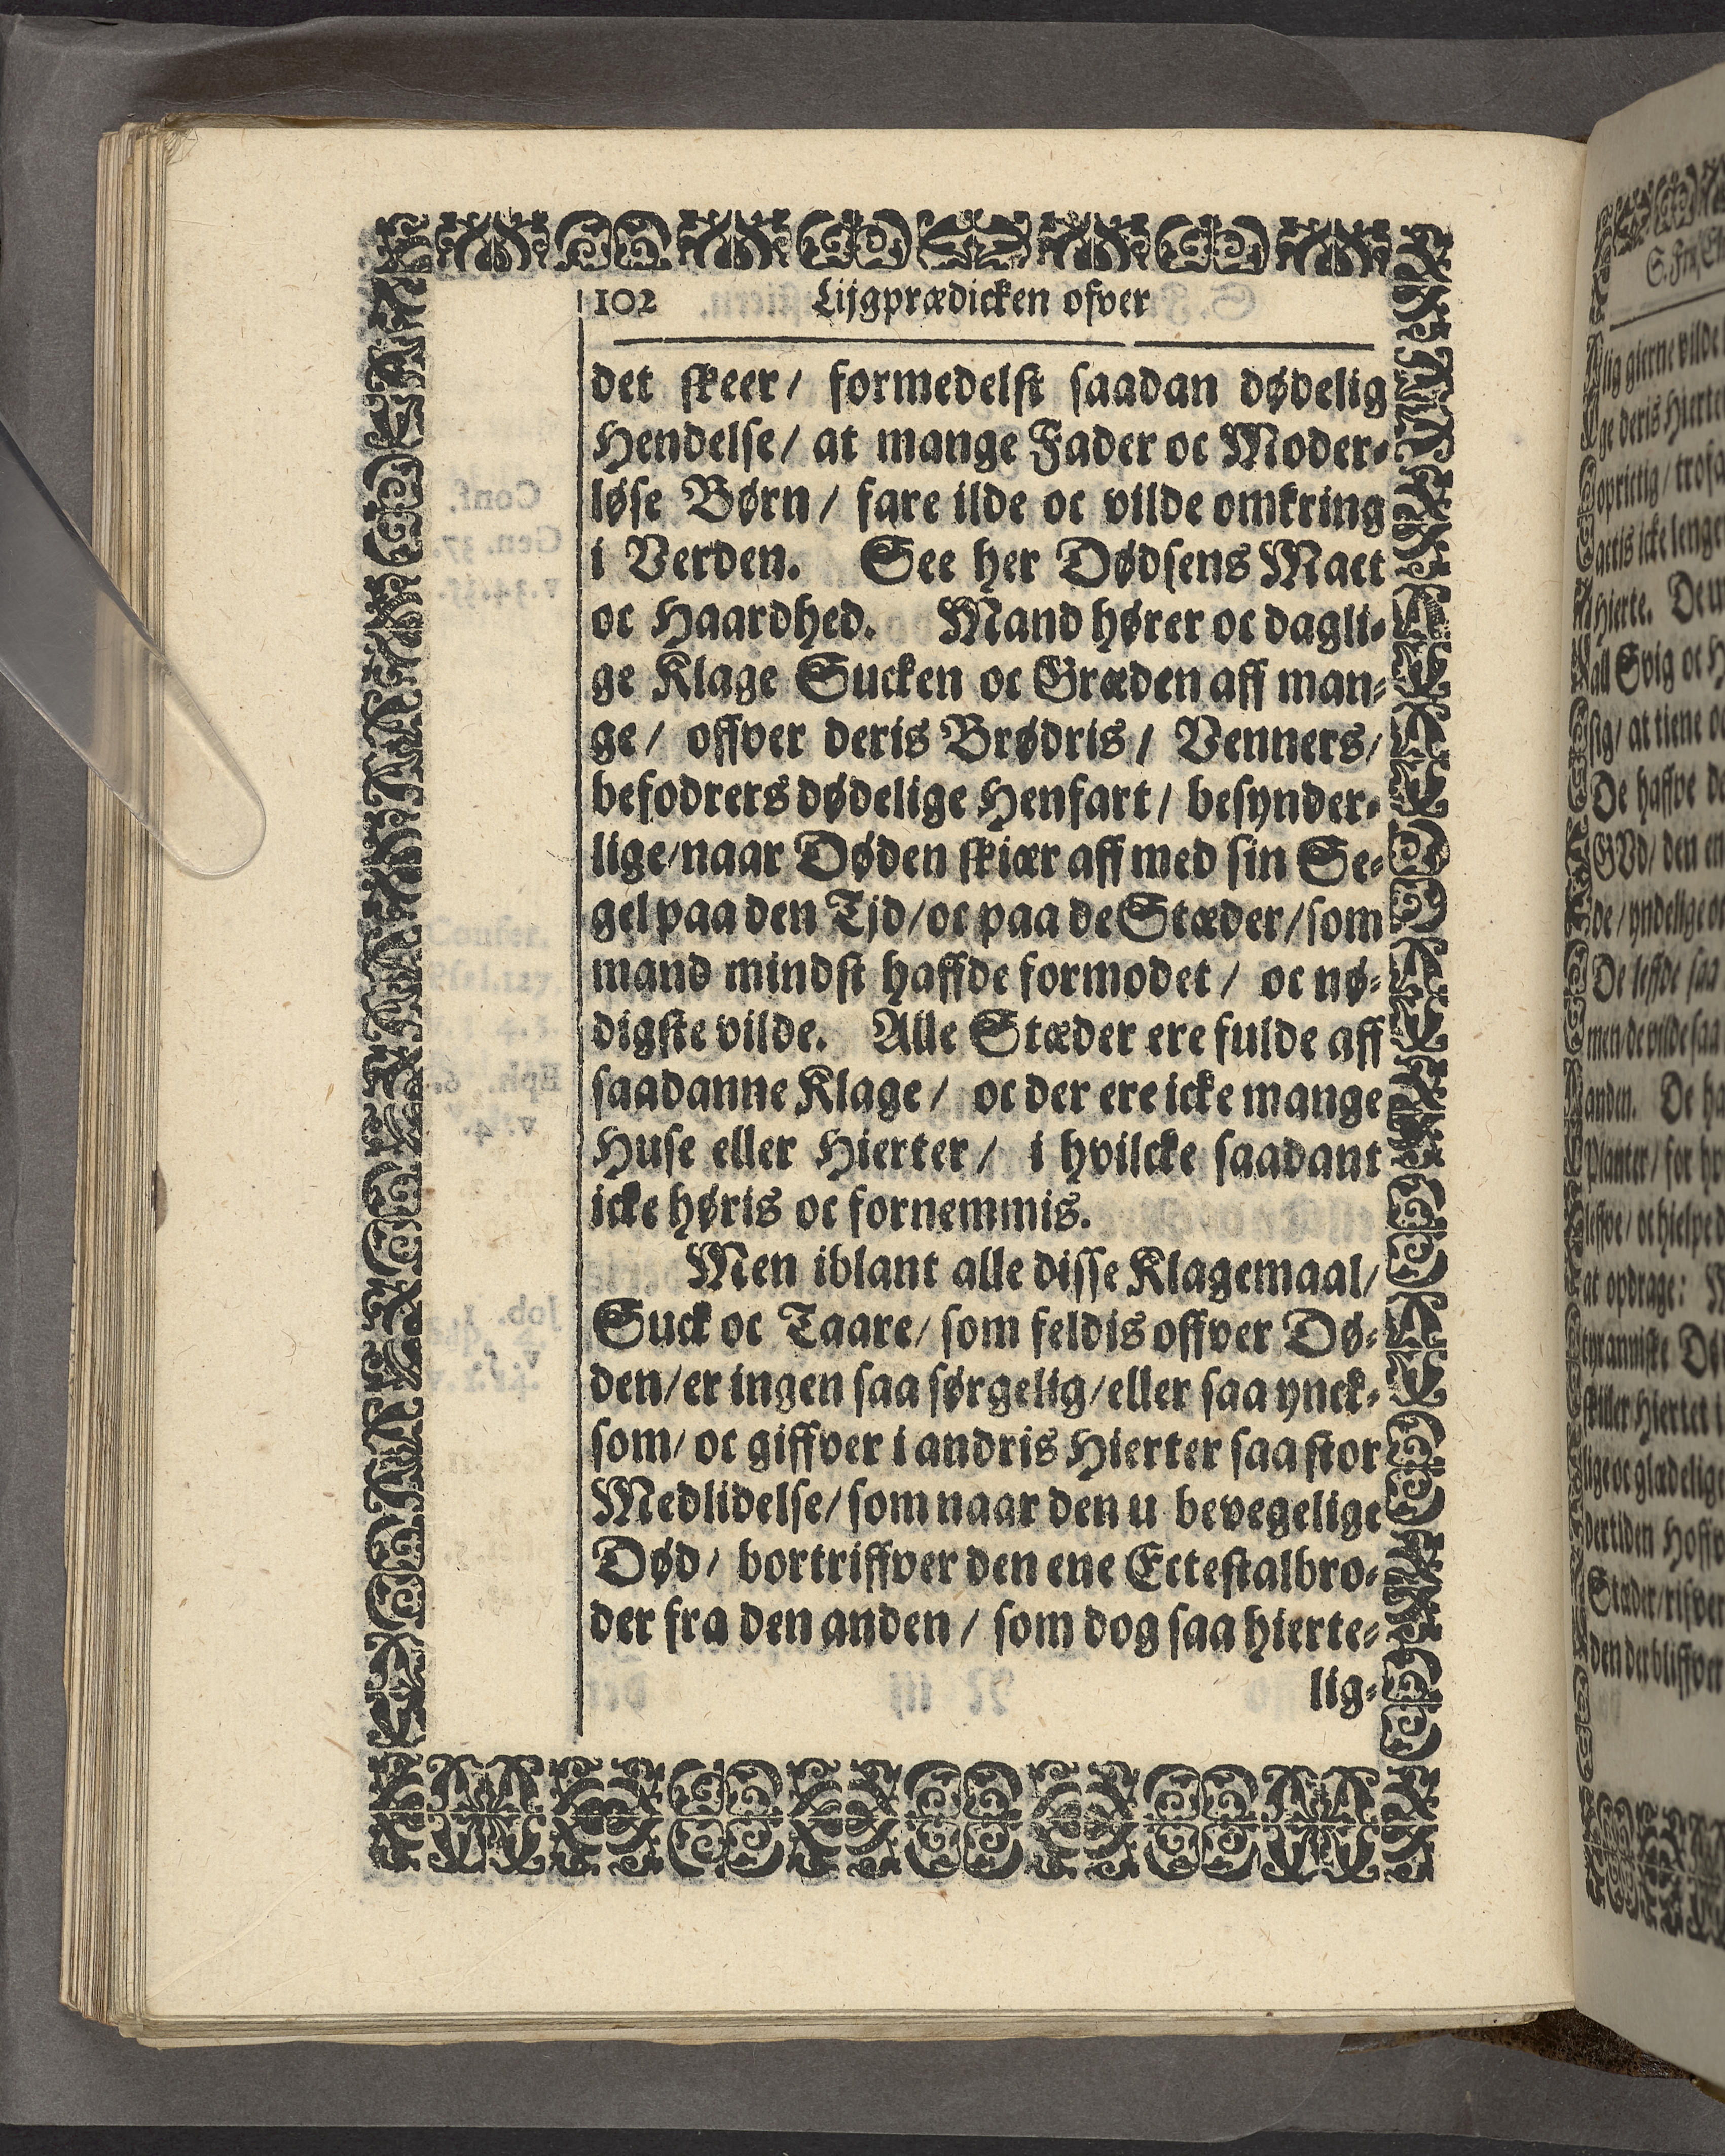 102 Lijgprædicken ofver
det skeer/ formedelst saadan dødelig
Hendelse/ at mange Fader oc Moder-
løse Børn/ fare ilde oc vilde omkring
i Verden. See her Dødsens Mact
oc Haardhed. Mand hører oc dagli-
ge Klage Sucken oc Græden aff man-
ge/ offver deris Brødris/ Venners/
befodrers dødelige Henfart/ besynder-
lige/naar Døden skiær aff med sin Se-
gel paa den Tjd/oc paa de Stæder/som
mand mindst haffde formodet/ oc nø-
digste vilde. Alle Stæder ere fulde aff
saadanne Klage/ oc der ere icke mange
Huse eller Hierter/ i hvilcke saadant
icke høris oc fornemmis.
Men iblant alle disse Klagemaal/
Suck oc Taare/ som feldis offver Dø-
den/er ingen saa sørgelig/eller saa ynck-
som/ oc giffver i andris Hierter saa stor
Medlidelse/ som naar den u bevegelige
Død/ bortriffver den ene Ectestalbro-
der fra den anden/ som dog saa hierte-
lig-